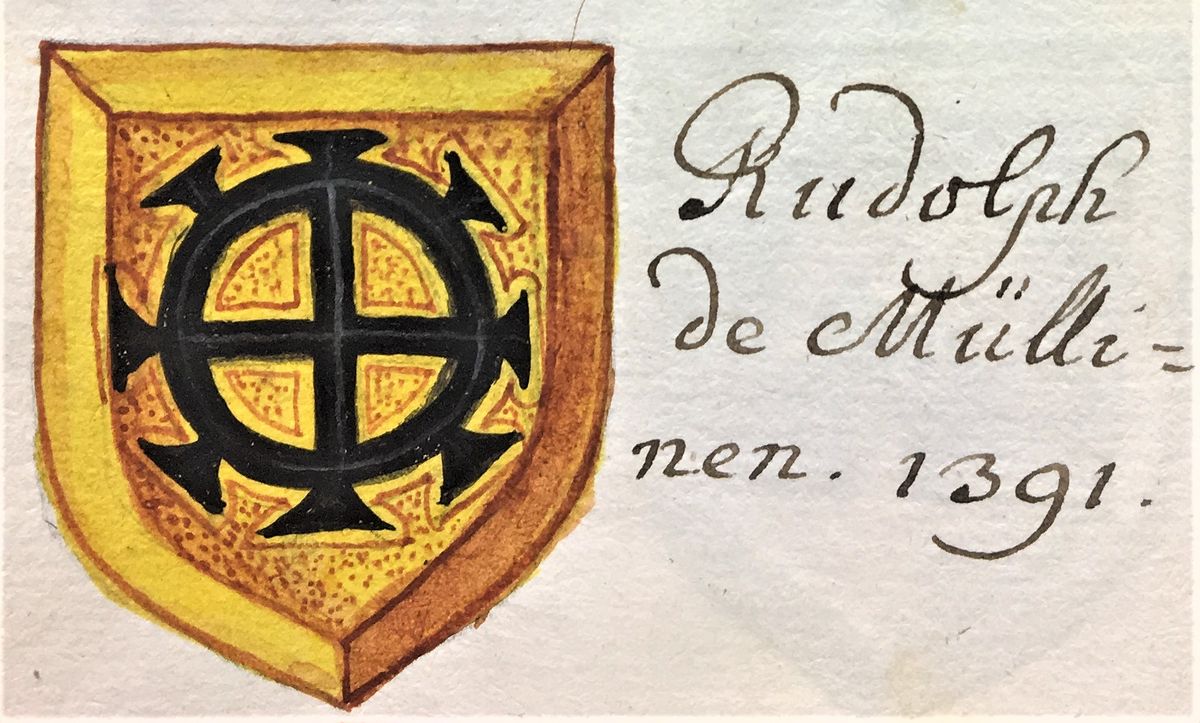 Rudolph
de Mülli=
nen. 1391.